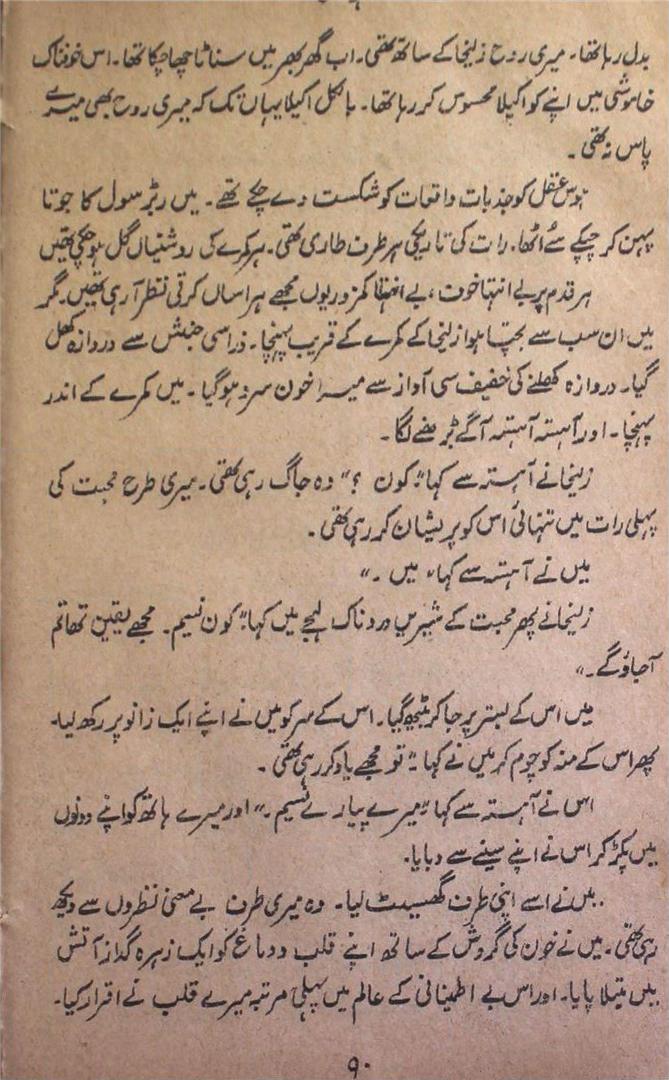 بدل رہا تھا۔ میری روح زلیخا کے ساتھ تھی۔ اب گھر بھر میں سناٹا چھا چکا تھا۔ اس خوفناک
خاموشی میں اپنے کو اکیلا محسوس کر رہا تھا۔ بالکل اکیلا یہاں تک کہ میری روح بھی میرے
پاس نہ تھی۔
ہوس عقل کو جذبات واقعات کو شکست دے چکے تھے۔ میں ربڑ سول کا جوتا
پہن کر چپکے سے اُٹھا۔ رات کی تاریکی ہر طرف طاری تھی۔ ہر کمرے کی روشنیاں گل ہو چکی تھیں
ہر قدم پر بے انتہا خوف، بے انتہا کمزوریوں مجھے ہراساں کرتی نظر آ رہی تھیں۔ مگر
میں ان سب سے بچتا ہوا زلیخا کے کمرے کے قریب پہنچا۔ ذرا سی جنبش سے دروازہ کھل
گیا۔ دروازہ کھلنے کی خفیف سی آواز سے میرا خون سرد ہو گیا۔ میں کمرے کے اندر
پہنچا۔ اور آہستہ آہستہ آگے بڑھنے لگا۔
زلیخا نے آہستہ سے کہا "کون ؟" وہ جاگ رہی تھی۔ میری طرح محبت کی
پہلی رات میں تنہائی اس کو پریشان کر رہی تھی۔
میں نے آہستہ سے کہا "میں ۔"
زلیخا نے پھر محبت کے شیریں دردناک لہجے میں کہا "کون نسیم۔ مجھے یقین تھا تم
آجاؤ گے۔"
میں اس کے بستر پر جا کر بیٹھ گیا۔ اس کے سر کو میں نے اپنے ایک زانو پر رکھ لیا۔
پھر اس کے منہ کو چوم کر میں نے کہا " تو مجھے یاد کر رہی تھی۔
اس نے آہستہ سے کہا "میرے پیارے نسیم ۔" اور میرے ہاتھ کو اپنے دونوں
میں پکڑ کر اس نے اپنے سینے سے دبایا۔
میں نے اسے اپنی طرف گھسیٹ لیا۔ وہ میری طرف بے معنی نظروں سے دیکھ
رہی تھی۔ میں نے خون کی گردش کے ساتھ اپنے قلب و دماغ کو ایک زہرہ گداز آتش
میں مبتلا پایا۔ اور اس بے اطمینانی کے عالم میں پہلی مرتبہ میرے قلب نے اقرار کیا۔
۹۰